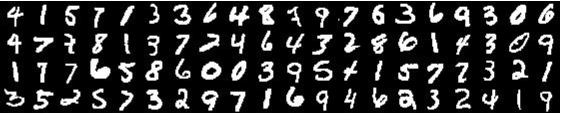 4 1 5 7 1 3 3 6 4 8 7 9 7 6 3 6 9 3 0 6
4 7 7 8 1 3 7 7 4 6 4 3 2 8 6 1 4 3 0 9
1 7 7 6 5 8 6 0 0 3 9 5 4 1 5 7 7 3 2 1
3 5 2 5 7 3 2 9 7 1 6 9 4 6 2 3 2 4 1 9